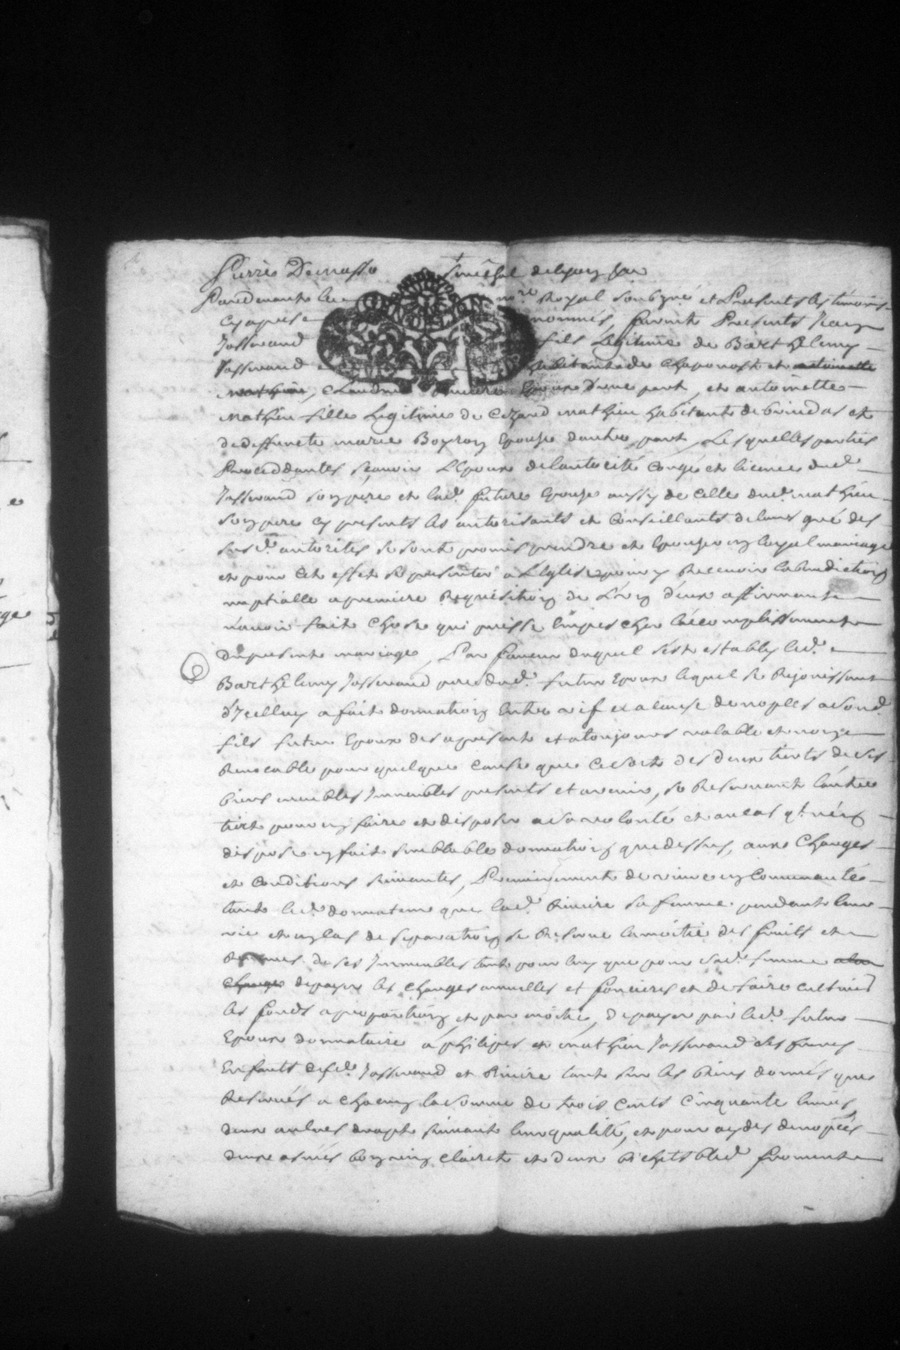 Pierre Dumasso Sméchal de Lyon
Pardevant le nore Royal soubsigné et Presents les témoins
cy apres nommés, furent Presents Jean
Jasseraud fils Légitime de Barthelemy
Jasseraud habitants de Chaponost et antoinette
Mathieu, Riviere Epoux d'une part, et antoinette
Mathieu fille Legitime de Cezard Mathieu habitants de brindas et
de deffuncte marie Boyron Epouse d'autre part, Lesquelles parties
Proceddantes sçavoir L'Epoux de l'autorité congé et licence dud.
Jasseraud son pere et lad. future Epouse aussy de celle dud. mathieu
son pere cy presents les autorisants et Conseillants de leur gré des
susd. autorités se sont promis prendre et Epouser en loyal mariage
et pour cet effet se presenter a L'Eglise pour y Recevoir la benediction
nuptialle a premiere Requisition de L'un d'eux affirmants
n'avoir fait chose qui puisse Empescher l'accomplissement
du present mariage, En faveur duquel s'est establi led.
Barthelemy Jasseraud pere dud. futur Epoux lequel se Rejouissant
d'Icelluy a fait donnation Entre vif et a cause de nopces a sond.
fils futur Epoux des apresent et a toujours valable et non
Revocable pour quelque cause que ce soit des deux tiers de ses
biens meubles Immeubles presents et avenir, se Reservant l'autre
tiers pour en faire et disposer a sa volonté et au cas qu'il n'en
dispose en fait semblable donnation que dessus, aux Charges
et conditions suivantes, Premierement de vivre en Communauté
tant led. donnateur que lad. Riviere sa femme pendant leur
vie et en cas de separation se Reserve la moitié des fruits et
Revenus de ses Immeubles tant pour luy que pour sad. femme
Charges de payer les charges annuelles et foncieres et de faire cultiver
les fonds a proportion et par moitié, de payer par led. futur
Epoux donnataire a philipes et mathieu Jasseraud ses freres
Enfants desd. Jasseraud et Riviere tant sur les Biens donnés que
Reservés a chacun la somme de trois cents cinquante livres
deux draps suivant leur qualité, et pour aydes de nopces
deux asnées bon vin clairet et deux Bichets bled froment